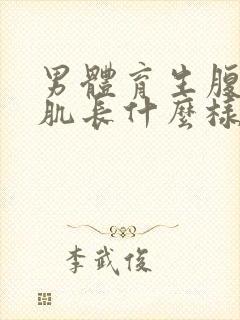 男體育生腹
肌長什麼樣
李武俊